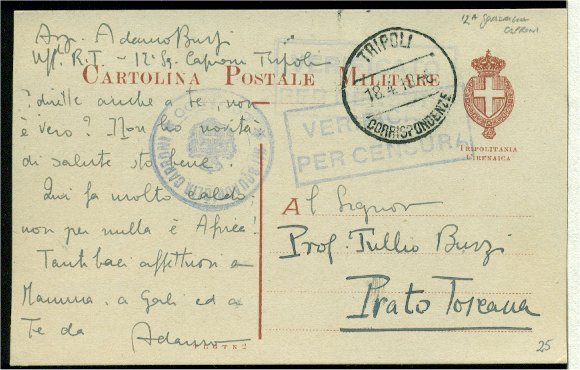 12ª Squadriglia
Caproni
Asp. Adamo Burzi
Uff. R.T. - 12ª Sq. Caproni Tripoli
CARTOLINA POSTALE MILITARE
TRIPOLI
18.4.
CORRISPONDENZE
VERIFICATO
PER CENSURA
TRIPOLITANIA
CIRENAICA
anche a te, non
è vero? Non ho novità
di salute sto bene.
Qui fa molto caldo
non per nulla è Africa!
Tanti baci affettuosi a
Mamma, a ed a
Te da Adamo
Al Signor
Prof. Tullio Burzi
Prato Toscana
25